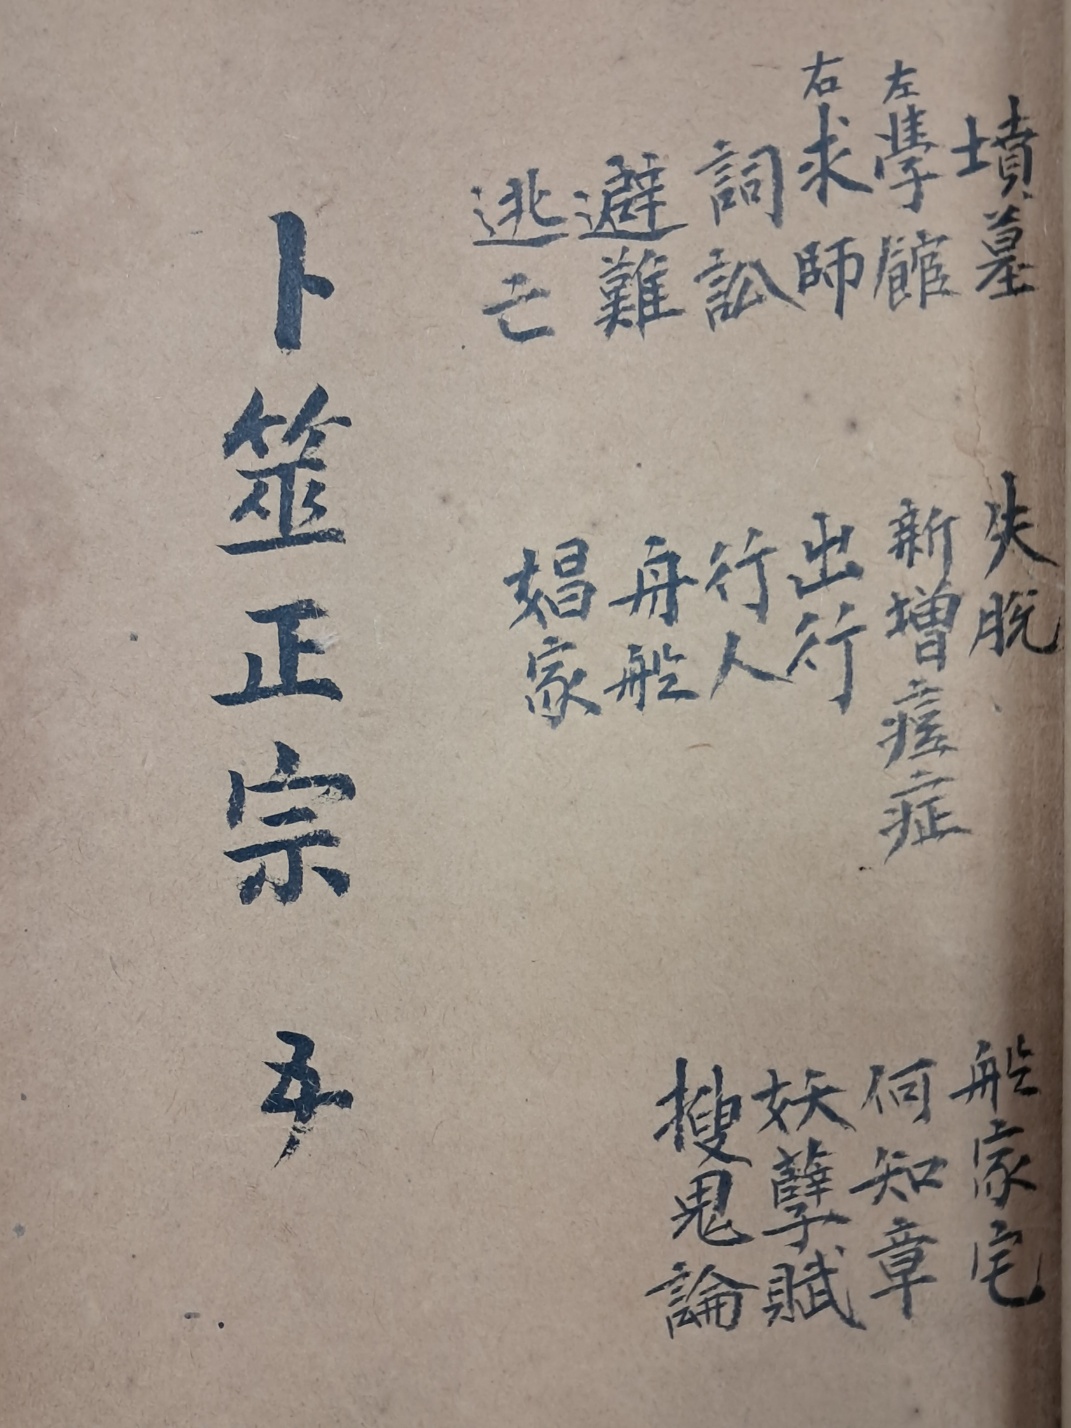 墳墓
左學館
右求師
詞訟
避難
逃亡
失脫
新增痘症
出行
行人
舟船
娼家
船家宅
何知章
妖孽賦
搜鬼論
卜筮正宗